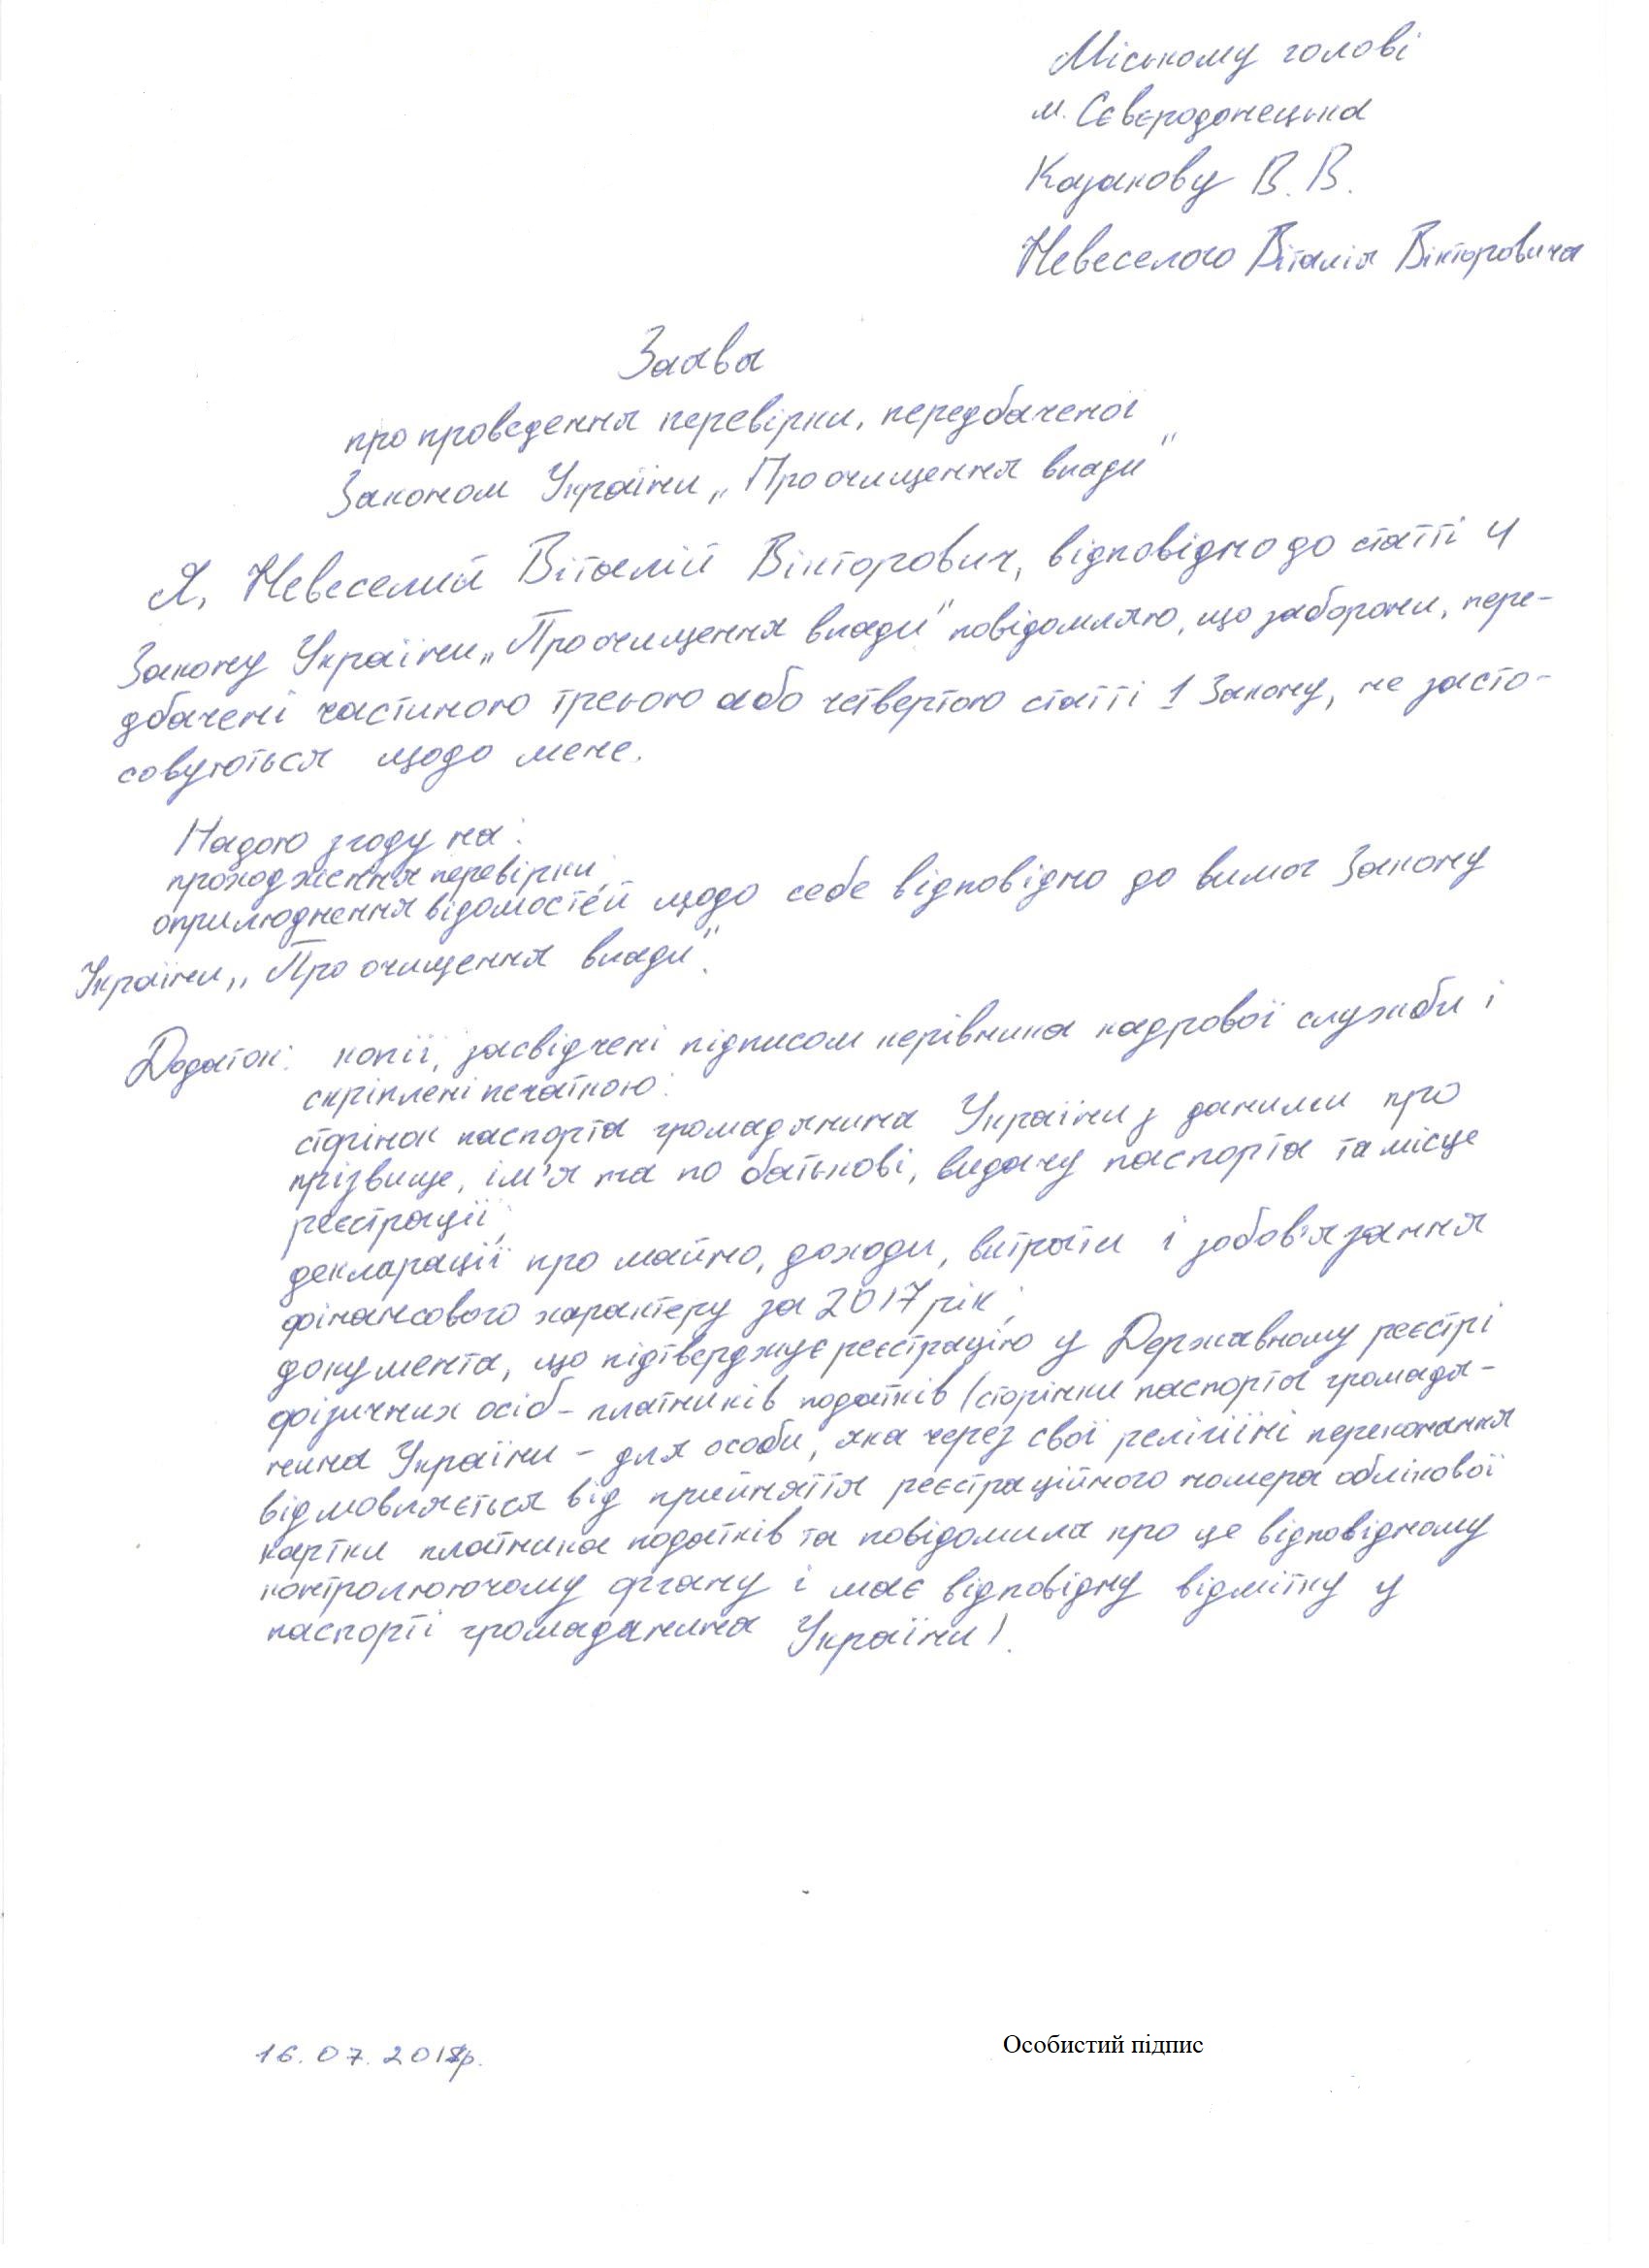 Міському голові
м. Сєвєродонецька
Казакову В. В.
Невеселого Віталія Вікторовича
Заява
про проведення перевірки, передбаченої
Законом України „Про очищення влади"
Я, Невеселий Віталій Вікторович, відповідно до статті 4
Закону України „Про очищення влади" повідомляю, що заборони, пере-
дбачені частиною третьою або четвертою статті 1 Закону, не засто-
совуються щодо мене.
Надаю згоду на:
проходження перевірки;
оприлюднення відомостей щодо себе відповідно до вимог Закону
України „Про очищення влади".
Додаток: копії, засвідчені підписом керівника кадрової служби і
скріплені печаткою:
сторінок паспорта громадянина України з даними про
прізвище, ім'я та по батькові, видачу паспорта та місце
реєстрації;
декларації про майно, доходи, витрати і зобов'язання
фінансового характеру за 2017 рік;
документа, що підтверджує реєстрацію у Державному реєстрі
фізичних осіб – платників податків (сторінки паспорта громадя-
нина України – для особи, яка через свої релігійні переконання
відмовляється від прийняття реєстраційного номера облікової
картки платника податків та повідомила про це відповідному
контролюючому органу і має відповідну відмітку у
паспорті громадянина України).
16.07.2018р. Особистий підпис